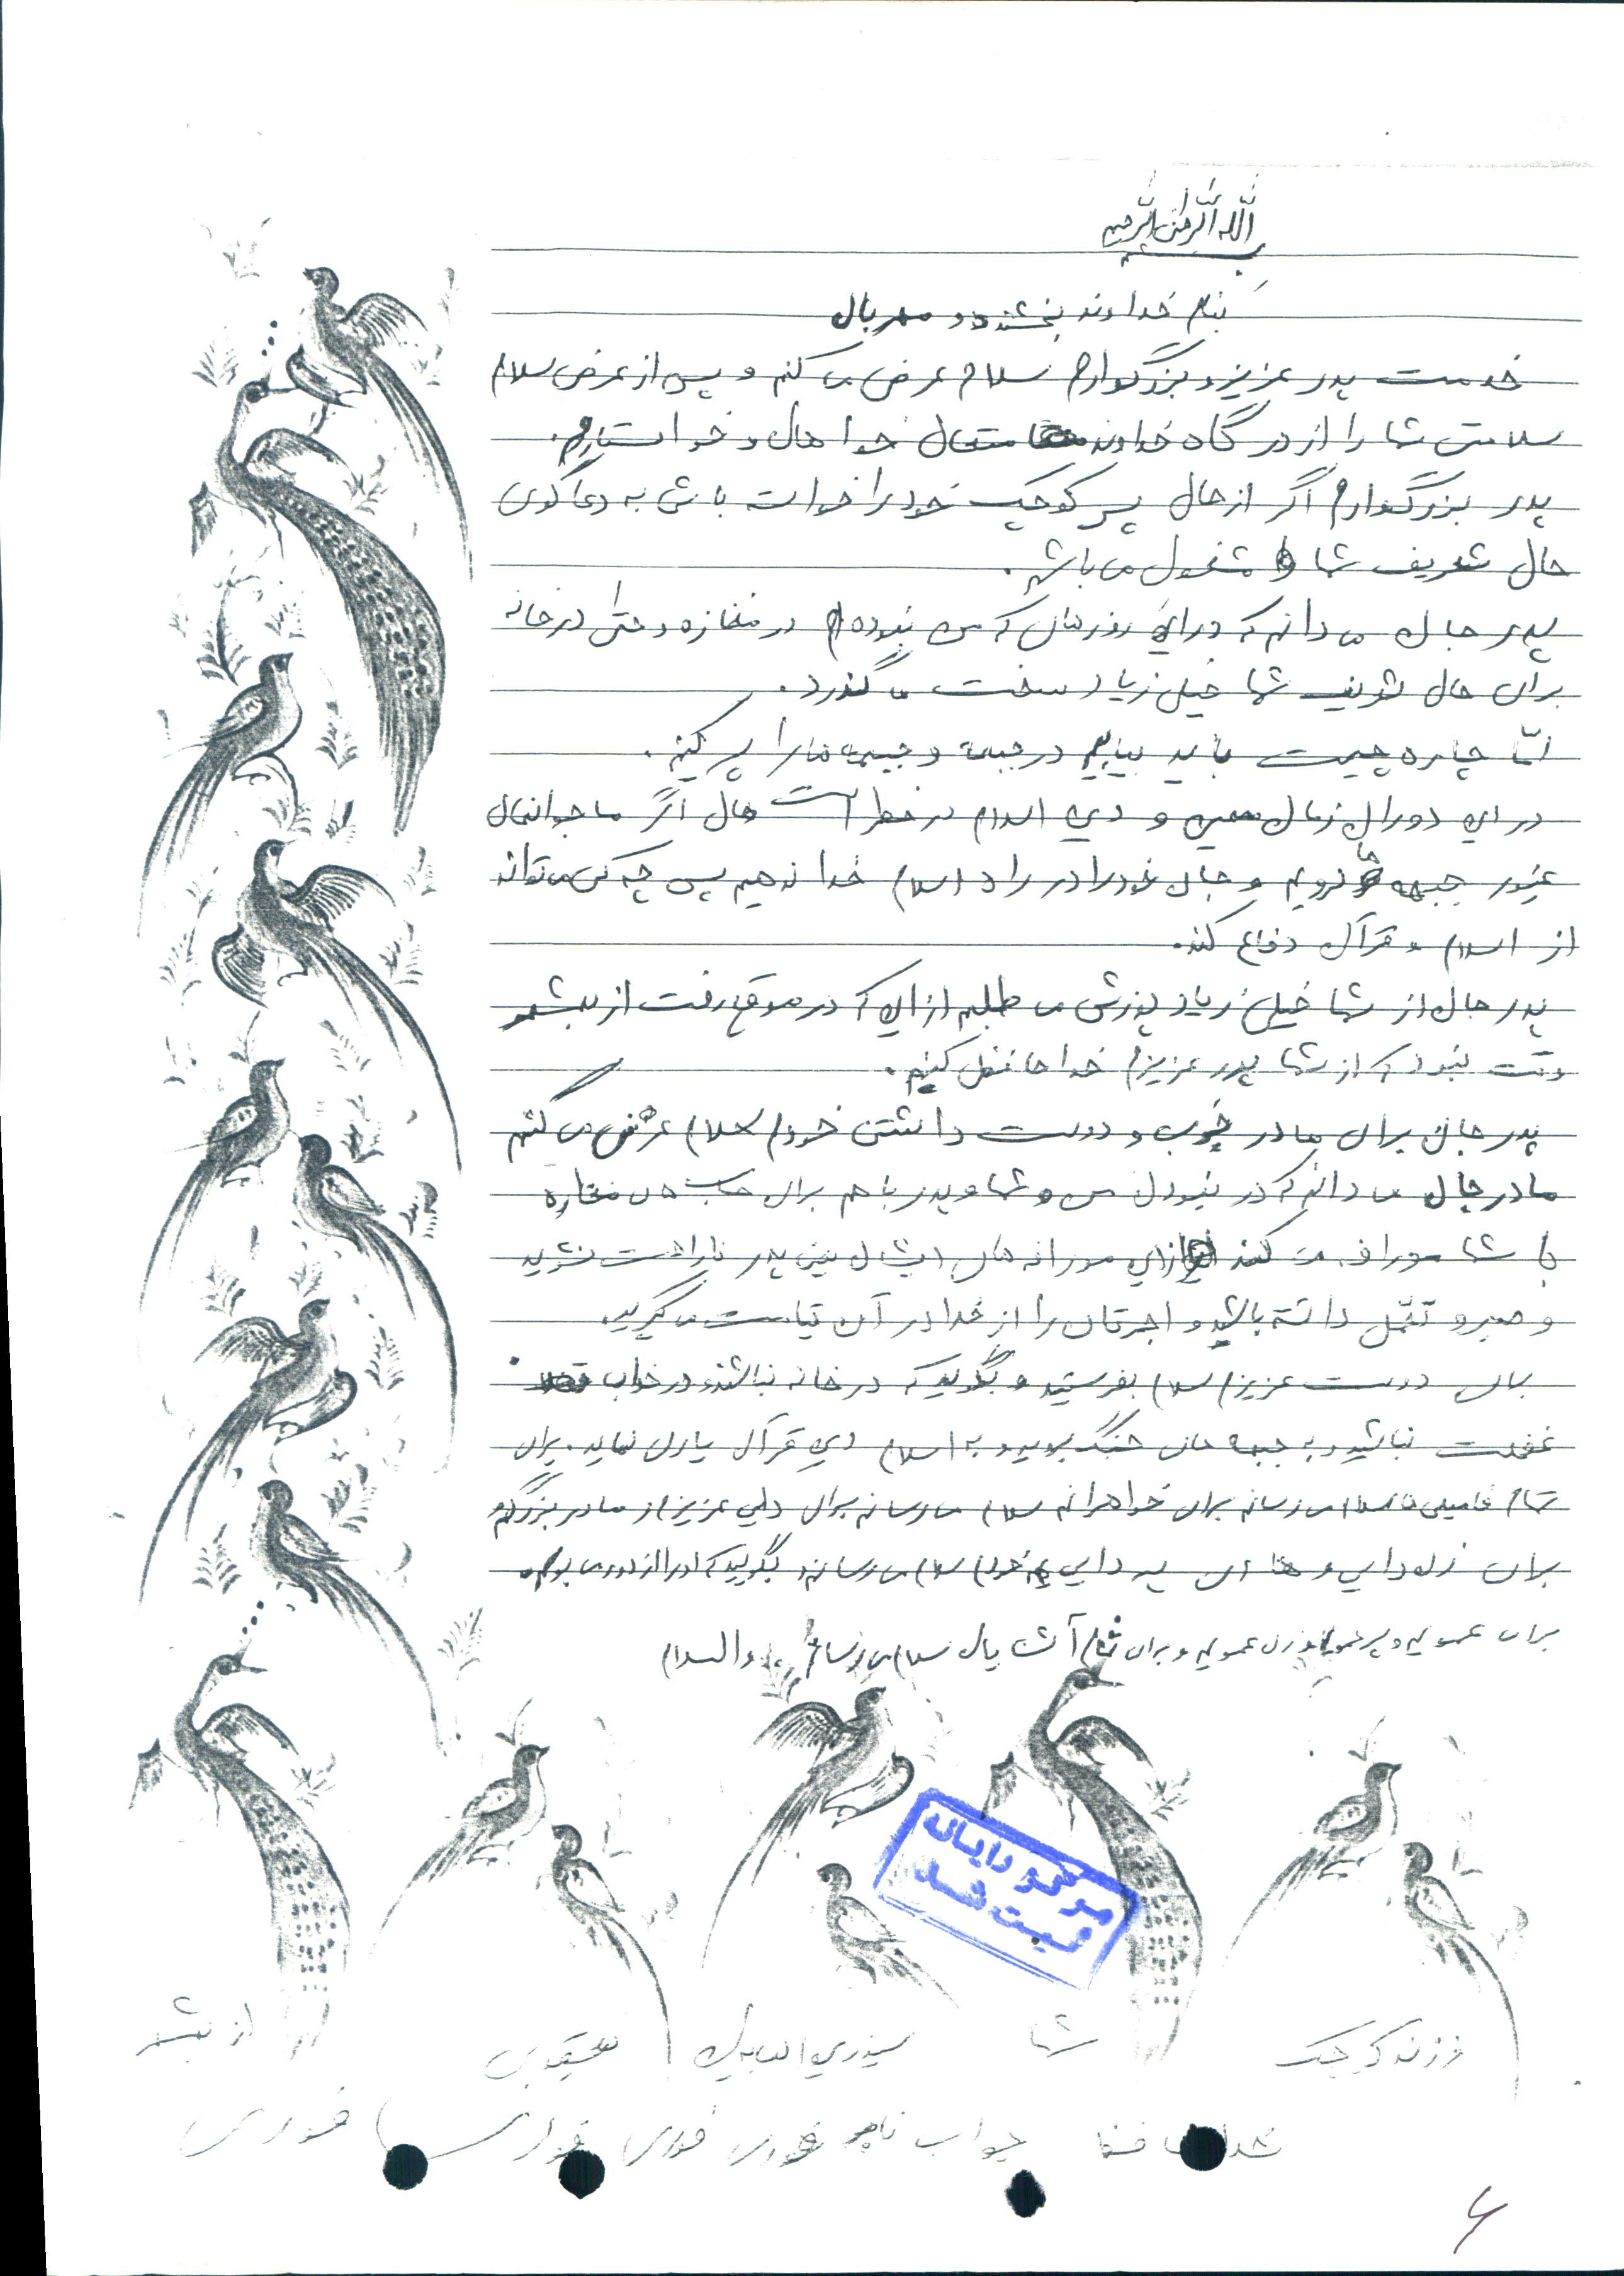 بسم الله الرحمن الرحیم
بنام خداوند بخشنده و مهربان
خدمت پدر عزیز و بزرگوارم سلام عرض می کنم و پس از عرض سلام
سلامتی شما را از درگاه خداوند متعال خواهان و خواستارم.
پدر بزرگوارم اگر از حال پسر کوچک خود را خواسته باشی به دعاگوی
حال شعریف شما مشغول می باشم.
پدر جان می دانم که در این روزهای که من نبوده ام در مغازه و حتی در خانه
برای حال شریف شما خیلی زیاد سخت می گذرد.
امّا چاره چیست باید بیاییم در جبهه و جبهه ها را پر کنیم.
در این دوران زمان و دین اسلام در خطر است حال اگر ما جوانهای
غیور جبهه ها نرویم و جان خود را در راه اسلام خدا ندهیم پس چه کسی می تواند
از اسلام و قرآن دفاع کند.
پدر جان از شما خیلی زیاد پوزش می طلبم از این که در موقع رفت از
وقت نبود که از شما پدر عزیزم خداحافظی کنیم.
پدر جان برای مادر خوب و دوست داشتنی خودم سلام عرض می کنم
مادر جان می دانم که در نبودن من و شما و پدر با هم برای حساب های مغازه
با شما می کند از این های ایشان یعنی پدر ناراحت نشوید
و صبر و تحمل داشته باشید و اجرتان را از خدا در آن قیامت می گیرید.
برای دوست عزیزم سلام بفرستید و بگویید که در خانه نباشند و در خواب
غفلت نباشید و به جبهه های جنگ بروید و به اسلام دین قرآن یاری نماید. برای
تمام فامیلی ها سلام می رسانم برای خواهرانم سلام می رسانم برای دایی عزیزم از مادر بزرگم
برای زن دایی و پسر دایی خودم سلام می رسانم و بگویید که او را از دور می بوسم.
برای عمویم و پسر عمویم و زن عمویم و برای تمام آشنایان سلام می رسانم. والسلام
مرکز رایانه
ثبت شد
فرزند کوچک شما یعقوبی از
جواب نامه فوری فوری فوری فوری
۶